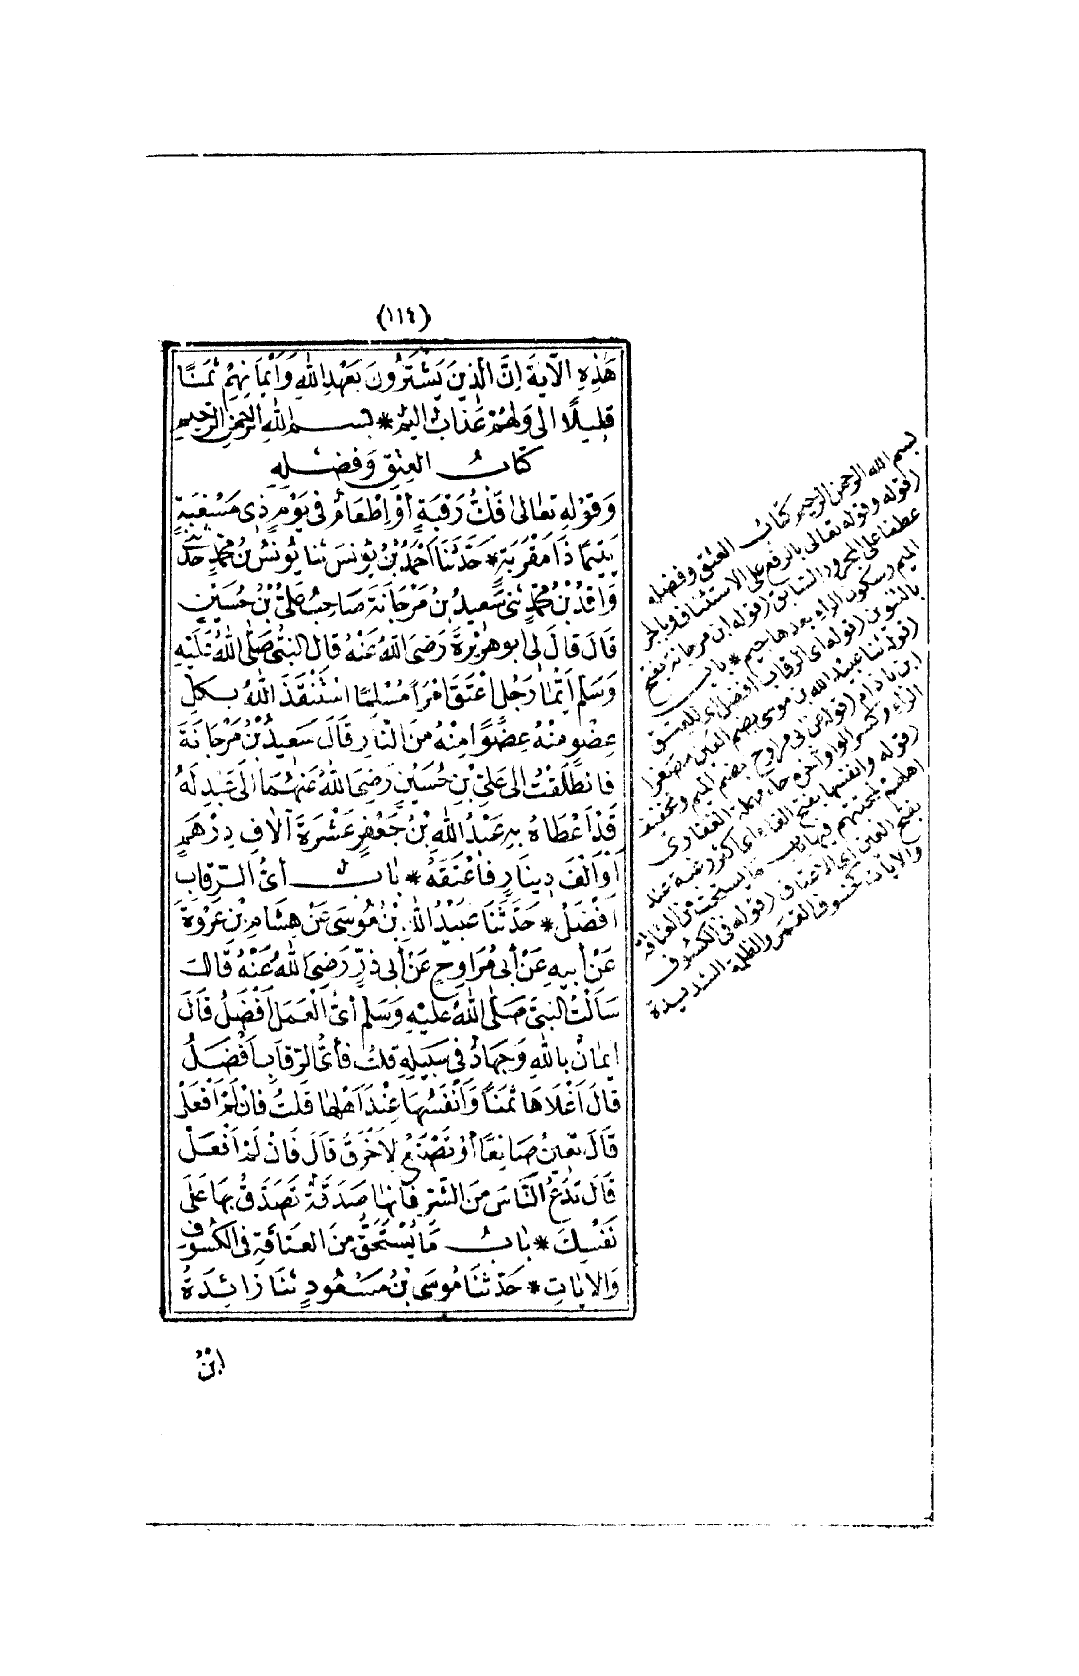 (١١٤)
هَذِهِ الْآيَةَ اِنَّ الَّذِينَ يَشْتَرُونَ بِعَهْدِ اللهِ وَأَيْمَانِهِمْ ثَمَنًا
قَلِيلًا الى وَلَهُمْ عَذَابٌ اليم * بسم الله الرحمن الرحيم
كتابُ العِتقِ وَفَضْلِهِ
وَقَوْلِهِ تَعَالَى فَكُّ رَقَبَةٍ أَوْ إِطْعَامٌ فِي يَوْمٍ ذِى مَسْغَبَةٍ
يَتِيمًا ذَا مَقْرَبَةٍ * حَدَّثَنَا اَحْمَدُ بْنُ يُونُسَ ثنا يُونُسُ بْنُ مُحَمَّدٍ حَدَّثَنِى
وَاقِدُ بْنُ مُحَمَّدٍ ثنى سَعِيدُ بْنُ مَرْجَانَةَ صَاحِبُ عَلِىِّ بْنِ حُسَيْنٍ
قَالَ قَالَ لِى أبو هُرَيْرَةَ رَضِىَ اللهُ عَنْهُ قَالَ النبىُّ صَلَّى اللهُ عَلَيْهِ
وَسَلَّمَ اَيُّمَا رَجُلٍ اَعْتَقَ امْرَأً مُسْلِمًا اسْتَنْقَذَ اللهُ بِكلِّ
عضْوٍ مِنْهُ عضْوًا مِنْهُ مِنَ النَّارِ قَالَ سَعِيدُ بْنُ مَرْجَانَةَ
فَانْطَلَقْتُ الى عَلِىِّ بْنِ حُسَيْنٍ رَضِىَ اللهُ عَنْهُمَا اِلَى عَبْدٍ لَهُ
قَدْ أَعْطَاهُ بِهِ عَبْدُ اللهِ بْنُ جَعْفَرٍ عَشْرَةَ آلَافِ دِرْهَمٍ
اَوْ اَلْفَ دِينَارٍ فَاَعْتَقَهُ * بَابٌ أىُّ الرِّقَابِ
اَفْضَلُ * حَدَّثَنَا عُبَيْدُ اللهِ بْنُ مُوسَى عَنْ هِشَامِ بْنِ عُرْوَةَ
عَنْ أَبِيهِ عَنْ أَبِى مُرَاوِحٍ عَنْ أَبِى ذَرٍّ رَضِىَ اللهُ عَنْهُ قَالَ
سَأَلْتُ النبىَّ صَلَّى اللهُ عَلَيْهِ وَسَلَّمَ أىُّ الْعَمَلِ اَفْضَلُ قَالَ
إيمَانٌ بِاللهِ وَجِهَادٌ فِى سَبِيلِهِ قلتُ فَأَىُّ الرِّقَابِ اَفْضَلُ
قَالَ اَغْلَاهَا ثَمَنًا وَاَنْفَسُهَا عِنْدَ اَهْلِهَا قلتُ فَاِنْ لَمْ اَفْعَلْ
قَالَ تُعِينُ صَانِعًا أَوْ تَصْنَعُ لِأَخْرَقَ قَالَ فَاِنْ لَمْ اَفْعَلْ
قَالَ تَدَعُ النَّاسَ مِنَ الشَّرِّ فَاِنَّهَا صَدَقَةٌ تَصَدَّقُ بِهَا عَلَى
نَفْسِكَ * بَابُ مَا يُسْتَحَبُّ مِنَ العَتَاقَةِ فِى الكُسُوفِ
وَالآيَاتِ * حَدَّثَنَا مُوسَى بْنُ مَسْعُودٍ ثنا زَائِدَةُ
ابْنُ
بسم الله الرحمن الرحيم كتاب العتق وفضله
(قوله وقوله تعالى بالرفع على الاستئناف وبالجر
عطفا على المجرور السابق (قوله ابن مرجانة بفتح
الميم وسكون الراء بعدها جيم * باب
بالتنوين (قوله اى الرقاب افضل اى للعتق
(قوله ثنا عبيد الله بن موسى بضم العين مصغرا
ابن باذام (قوله عن ابى مراوح بضم الميم وتخفيف
الراء وكسر الواو آخره حاء مهملة الغفارى
(قوله وانفسها بفتح الفاء اى اكثر رغبة عند
اهلها لمحبتهم فيها باب ما يستحب من العتاقة
بفتح العين اى الاعتاق (قوله فى الكسوف
والآيات كخسوف القمر والظلمة الشديدة